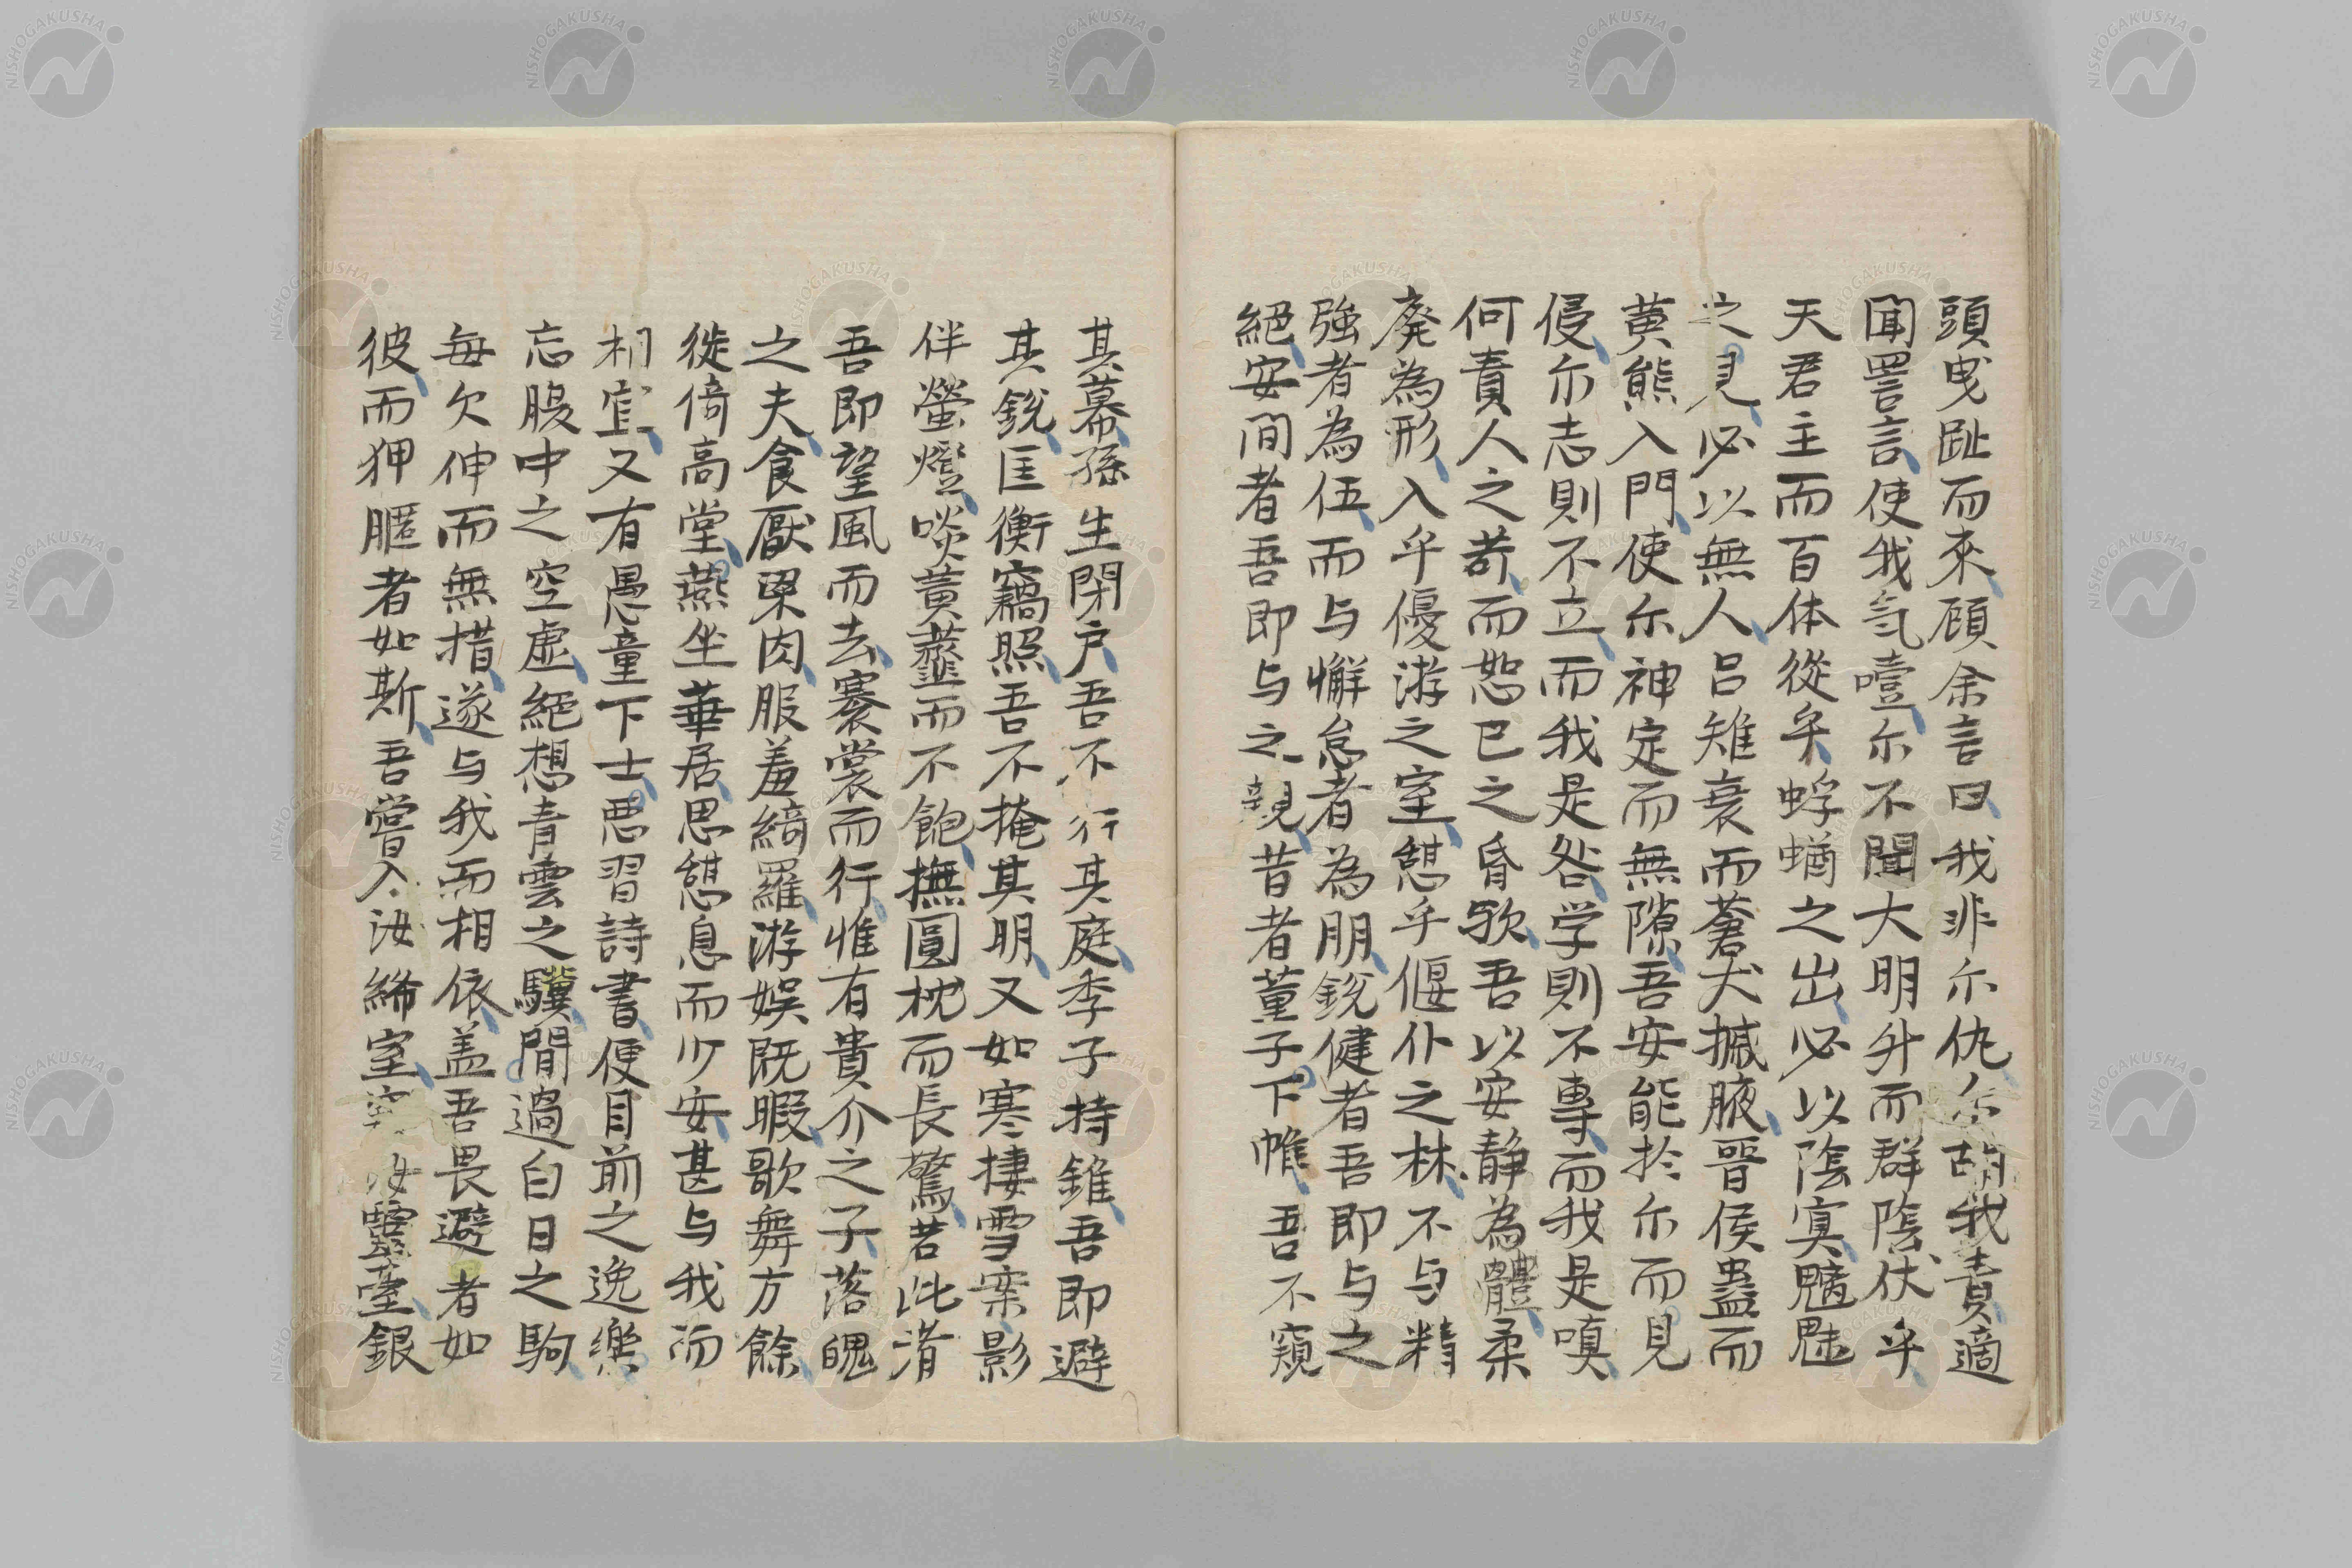 頭曳趾而来顧余言曰我非尓仇尓胡我責適
聞詈言使我気噎尓不聞大明升而群陰伏乎
天君主而百体從乎蜉蝤之出必以陰寞魑魅
之見必以無人呂雉衰而蒼犬撼腋晉侯蠱而
黄熊入門使尓神定而無隙吾安能於尓而見
侵尓志則不立而我是咎学則不專而我是嗔
何責人之苛而恕已之昏歟吾以安静為體柔
廃為形入乎優游之室憩乎偃仆之林不与精
強者為伍而与懈怠者為朋鋭健者吾即与之
絕安間者吾即与之親昔者董子下帷吾不窺
其幕孫生閉户吾不行其庭季子持錐吾即避
其鋭匡衡竊照吾不掩其明又如寒棲雪案影
伴螢燈啖黄虀而不飽撫圓枕而長驚若此滑
吾即望風而去褰裳而行惟有貴介之子落魄
之夫食厭梁肉服羞綺羅游娯既暇歌舞方餘
徙倚高堂燕坐華居思憩息而少安甚与我而
相宜又有愚童下士悪習詩書便目前之逸樂
忘腹中之空虚絕想青雲之驥閒過白日之駒
每欠伸而無措遂与我而相依盖吾畏避者如
彼而狎暱者如斯吾嘗入汝締室汝靈臺銀